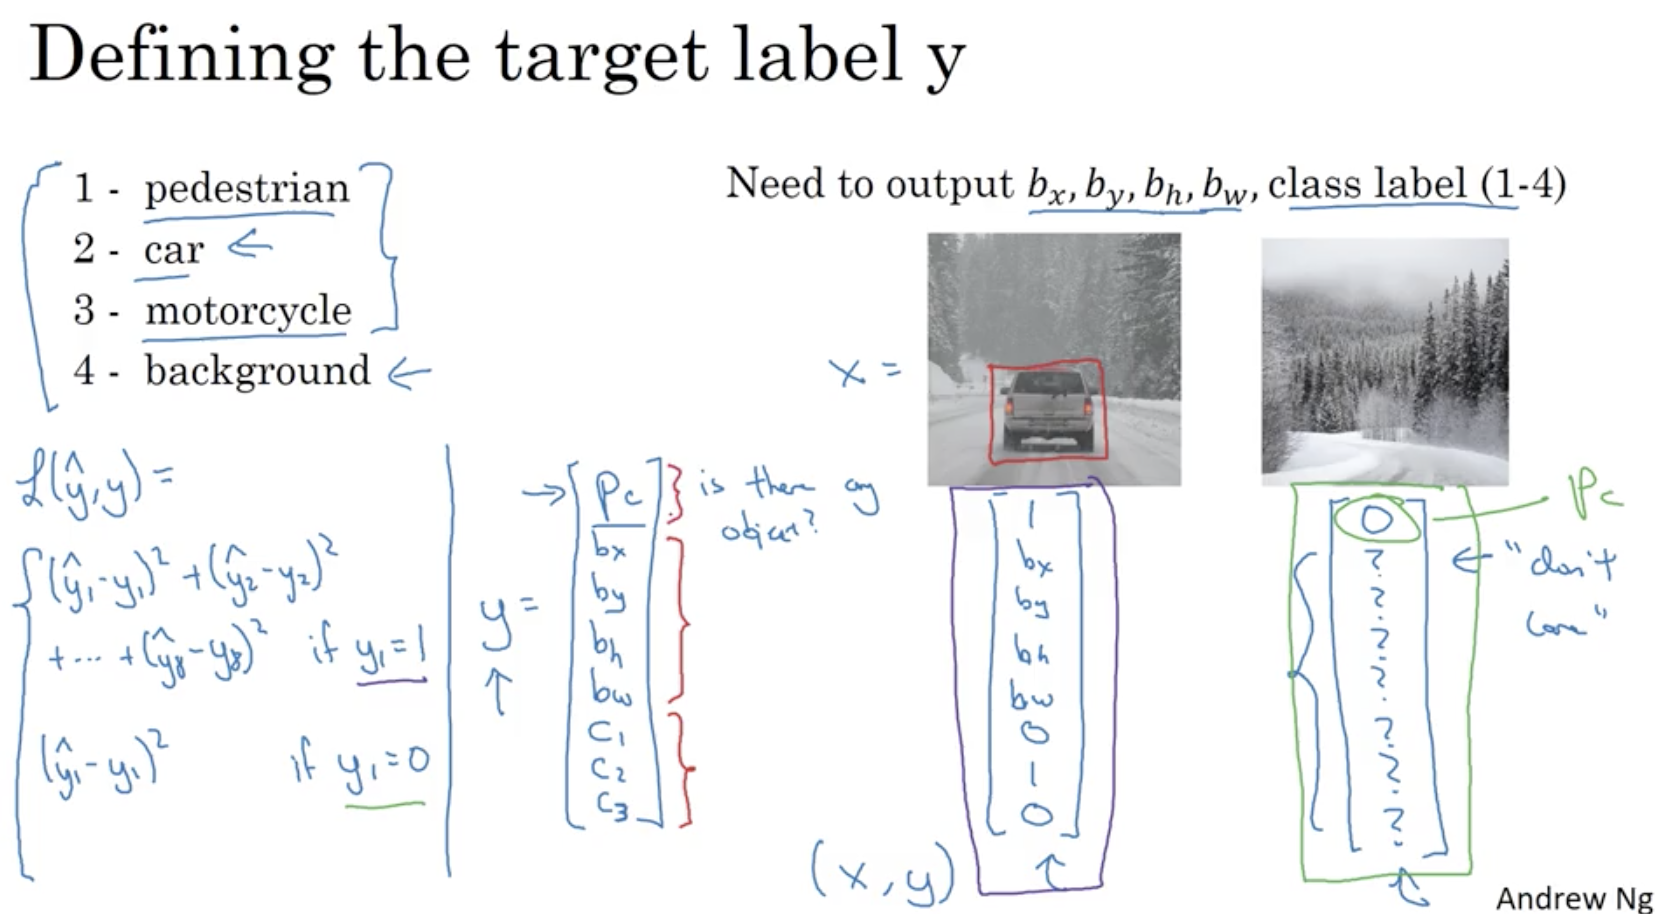 Defining the target label y
1 - pedestrian
2 - car ←
3 - motorcycle
4 - background ←
Need to output bₓ, b_y, b_h, b_w, class label (1-4)
x =
ℒ(ŷ,y) =
(ŷ₁-y₁)² + (ŷ₂-y₂)²
+ ... + (ŷ₈-y₈)² if y₁=1
(ŷ₁-y₁)² if y₁=0
y =
→ Pc
bx
by
bh
bw
C1
C2
C3
is there any
object?
1
bx
by
bh
bw
0
1
0
(x, y)
0
?
?
?
?
?
?
?
Pc
← "don't
care"
Andrew Ng